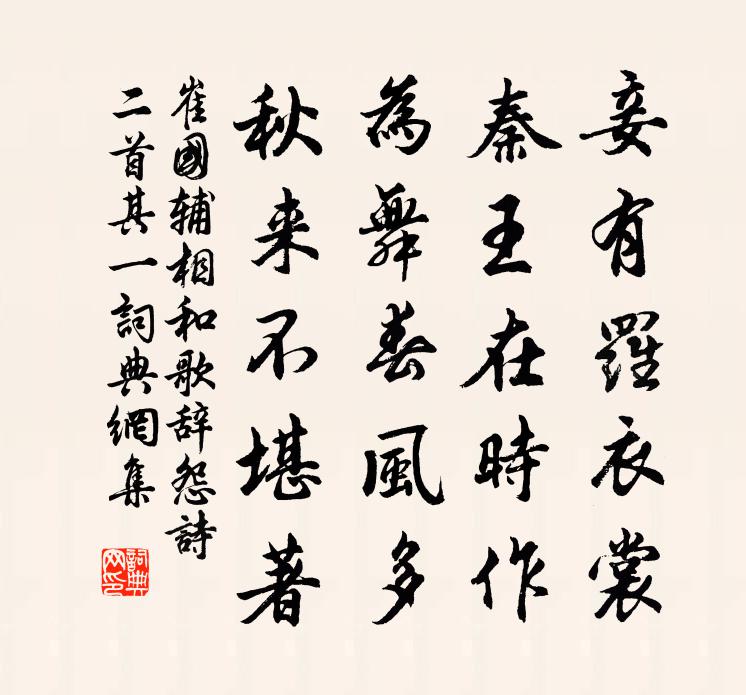 妾有羅衣裳
秦王在時作
為舞春風多
秋来不堪著
崔國辅相和歌辞怨詩
二首其一詞典網集
詞典
网印